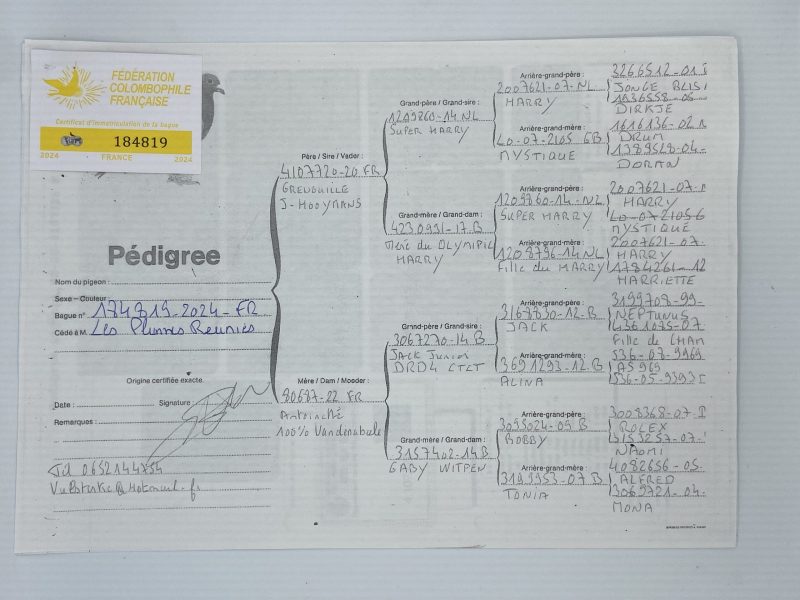 FÉDÉRATION
COLOMBOPHILE
FRANÇAISE
Certificat d'immatriculation de la bague
184819
2024 FRANCE 2024
Pédigree
Nom du pigeon :
Sexe – Couleur
Bague n° 174819-2024-FR
Cédé à M. Les Plumes Reunies
Origine certifiée exacte
Date : Signature :
Remarques :
Tél 0652144754
Père / Sire / Vader :
4107720-20 FR
GRENOUILLE
J-HOOYMANS
Mère / Dam / Moeder :
80687-22 FR
Antoinché
100% Vandenabeele
Grand-père / Grand-sire :
1209760-14 NL
SUPER HARRY
Grand-mère / Grand-dam :
4230991-17 B
Mère du OLYMPIC
HARRY
Grand-père / Grand-sire :
3067270-14 B
JACK Junior
DRD4 CTLT
Grand-mère / Grand-dam :
3157402-14 B
GABY WITPEN
Arrière-grand-père :
2007621-07-NL
HARRY
Arrière-grand-mère :
40-07-2105 GB
MYSTIQUE
Arrière-grand-père :
1209760-14-NL
SUPER HARRY
Arrière-grand-mère :
1208796-14 NL
Fille du HARRY
Arrière-grand-père :
3167830-12-B
JACK
Arrière-grand-mère :
3691293-12.B
ALINA
Arrière-grand-père :
3095024-09 B
BOBBY
Arrière-grand-mère :
3199953-07 B
TONIA
3266512-01
JONGE BLISI
1936558-05
DIRKJE
1616136-02
DRUM
1789528-04-
DORAN
2007621-07-
HARRY
40-07-2105 G
MYSTIQUE
2007621-07-
HARRY
1784261-12
HARRIETTE
3199708-99-
NEPTUNUS
4361075-07
Fille de
536-07-9969
AS 969
536-05-9393
3008368-07
ROLEX
3153257-07-
NAOMI
4082656-05-
ALFRED
3069721-04-
MONA